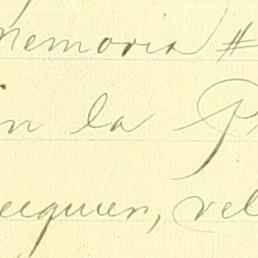 Memoria #
in la P
ecquier, vel